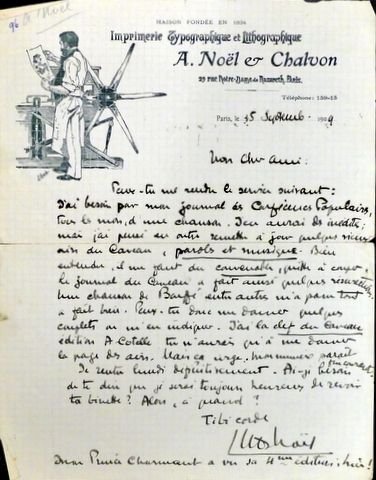 96 A. Noël
MAISON FONDÉE EN 1894
Imprimerie Typographique et Lithographique
A. Noël & Chalvon
29 rue Notre-Dame de Nazareth, Paris.
Téléphone: 159-15
Paris, le 15 Septembre 1909
Mon Cher Ami:
Peux-tu me rendre le service suivant:
J'ai besoin par mon journal des Conférences Populaires,
tous les mois, d'une chanson. J'en aurai des inédites;
mais j'ai pensé en outre remettre à jour quelques vieux
airs du Caveau, paroles et musique. Bien
entendu, il me faut du convenable, quitte à couper,
le journal du Caveau a fait aussi quelques
Une chanson de entre autres m'a paru tout
à fait bien. Peux-tu donc me donner quelques
couplets ou m'en indiquer. J'ai la clef du Caveau
édition A Cotelle tu n'aurais qu'à me donner
la page des airs. Mais ça urge, mon numéro paraît
fin courant.
Je rentre lundi définitivement. Ai-je besoin
de te dire que je serai toujours heureux de revoir
ta binette? Alors, à quand?
Tibi corde
Noël
Prince Charmant a vu sa 4me édition,